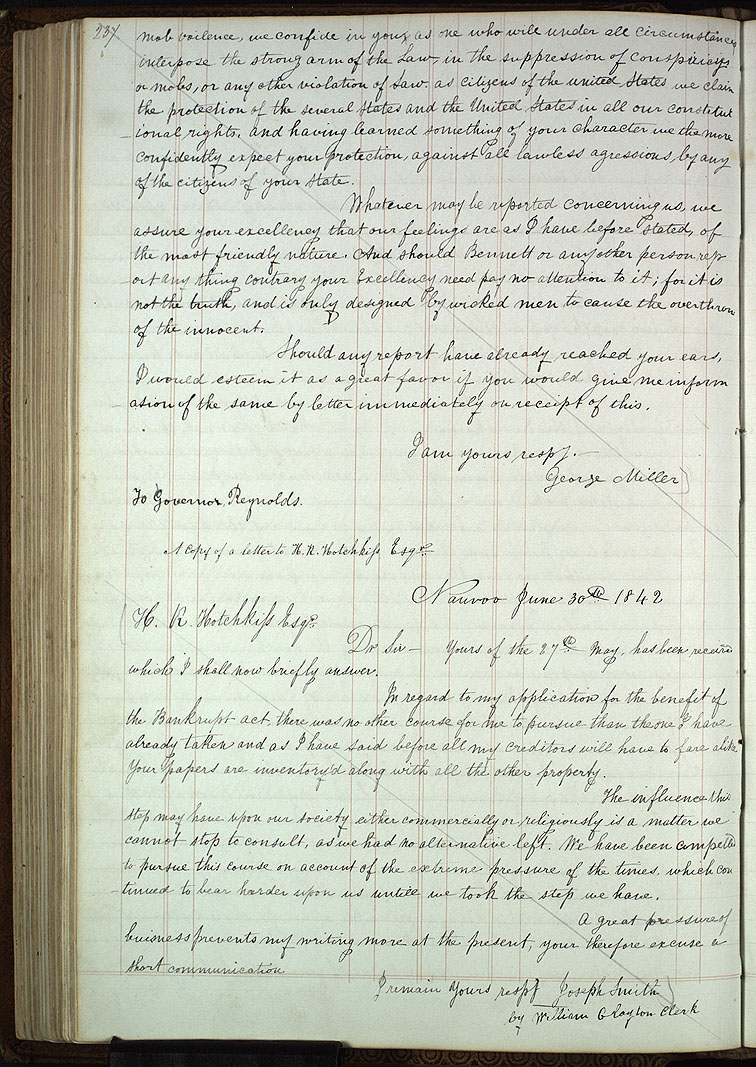 237
mob voilence, we confide in you, as one who will under all circumstances
interpose the strong arm of the Law, in the suppression of conspiracys
or mobs, or any other violation of Law. as citizens of the united States we claim
the protection of the several States and the United States in all our constitut
ional rights. And having learned something of your character we the more
confidently expect your protection, against all lawless agressions, by any
of the citizens of your State.
Whatever may be reported concerning us, we
assure your excellency that our feelings are as I have before stated, of
the most friendly nature. And should Bennett or any other person rep
ort any thing contrary your Excellency need pay no attention to it; for it is
not the truth, and is only designed by wicked men to cause the overthrow
of the innocent.
Should any report have already reached your ears,
I would esteem it as a great favor if you would give me inform
asion of the same by letter immediately on receipt of this.
I am yours respy.
George Miller)
To Governor Reynolds.
A copy of a letter to H. R. Hotchkiss Esqr
Nauvoo June 30th 1842
H. R. Hotchkiss Esqr
Dr Sir — Yours of the 27th May, has been received
which I shall now briefly answer.
In regard to my application for the benefit of
the Bankrupt act there was no other course for me to pursue than the one I have
already taken and as I have said before all my creditors will have to fare alike
Your papers are inventory'd along with all the other property.
The influence this
step may have upon our society either commercially or religiously is a matter we
cannot stop to consult, as we had no alternative left. We have been compelled
to pursue this course on account of the extreme pressure of the times, which con
tinued to bear harder upon us untill we took the step we have.
A great pressure of
buisness prevents my writing more at the present, your therefore excuse a
short communication
I remain Yours respy Joseph Smith
by William Clayton Clerk